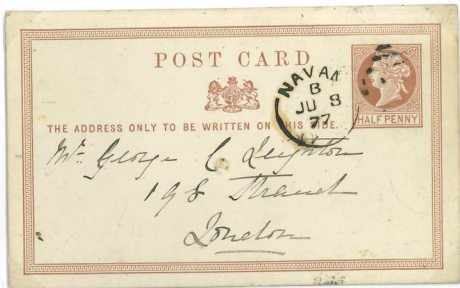 POST CARD
NAVAN
B
JU 8
77
HALF PENNY
THE ADDRESS ONLY TO BE WRITTEN ON THIS SIDE.
Mr. George C Leighton
198 Strand
London